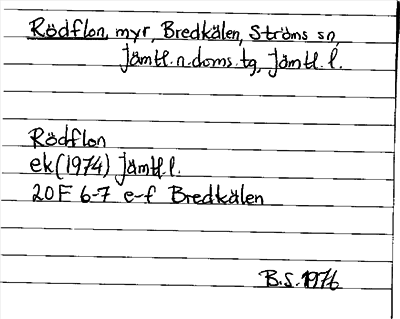 Rödflon, myr, Bredkälen, Ströms sn,
Jämtl.n.doms.tg, Jämtl.l.
Rödflon
ek (1974) Jämtl.l.
20 F 6-7 e-f Bredkälen
B.S. 1976